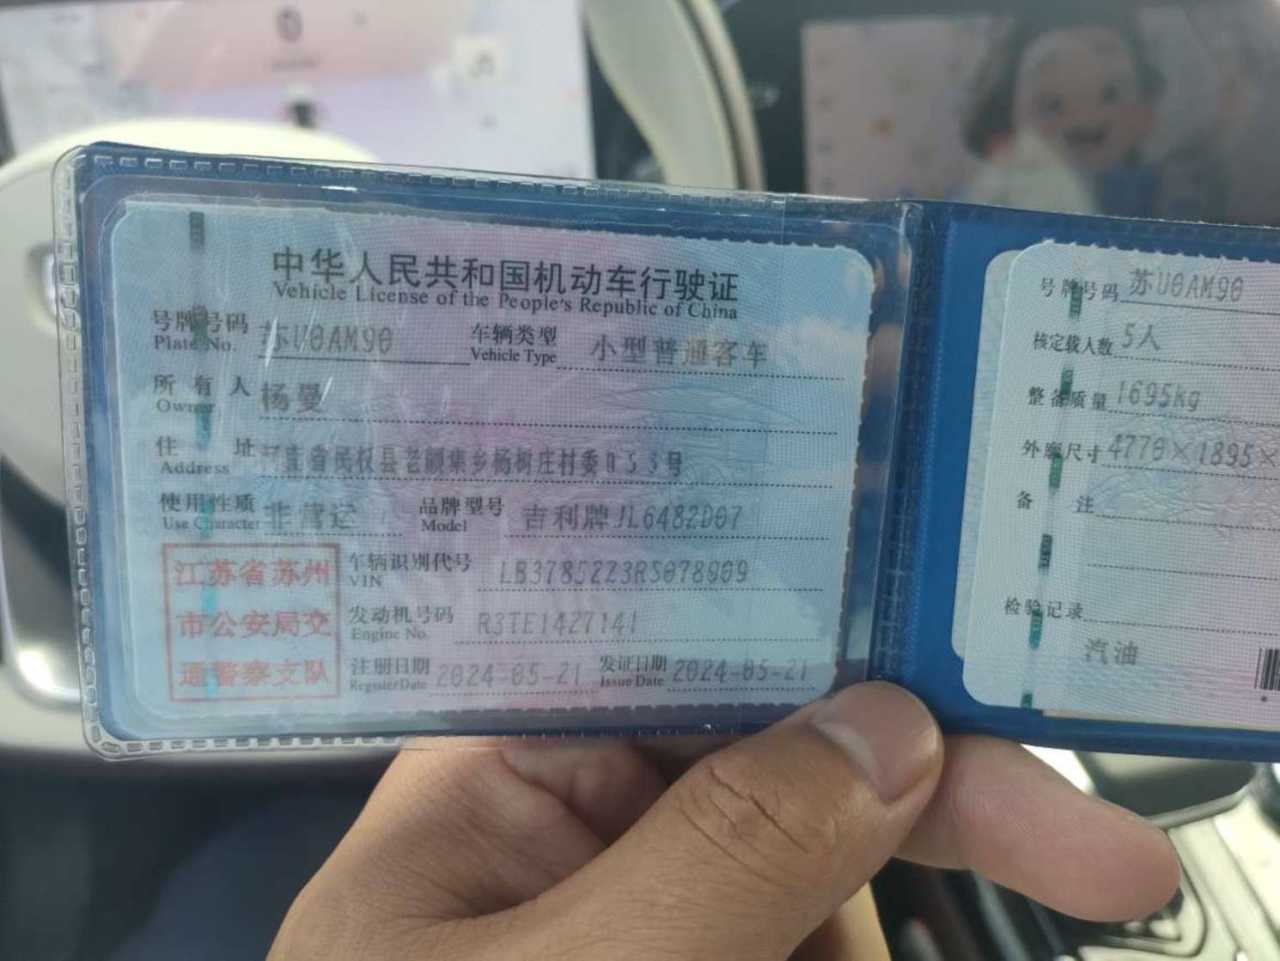 中华人民共和国机动车行驶证
Vehicle License of the People's Republic of China
号牌号码 苏U0AM90 车辆类型 小型普通客车
Plate No. Vehicle Type
所有人 杨曼
Owner
住址 省民权县老颜集乡杨树庄村委053号
Address
使用性质 非营运 品牌型号 吉利牌JL6482D07
Use Character Model
江苏省苏州
市公安局交
通警察支队
车辆识别代号 LB37852Z3RS078909
VIN
发动机号码 R3TE1427141
Engine No.
注册日期 2024-05-21 发证日期 2024-05-21
Register Date Issue Date
号牌号码 苏U0AM90
核定载人数 5人
整备质量 1695kg
外廓尺寸 4770×1895×
备注
检验记录
汽油